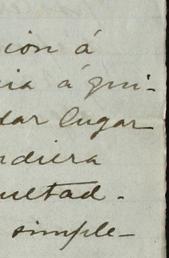 sion á
cia á qui-
dar lugar
ndiera
ultad.
simple-